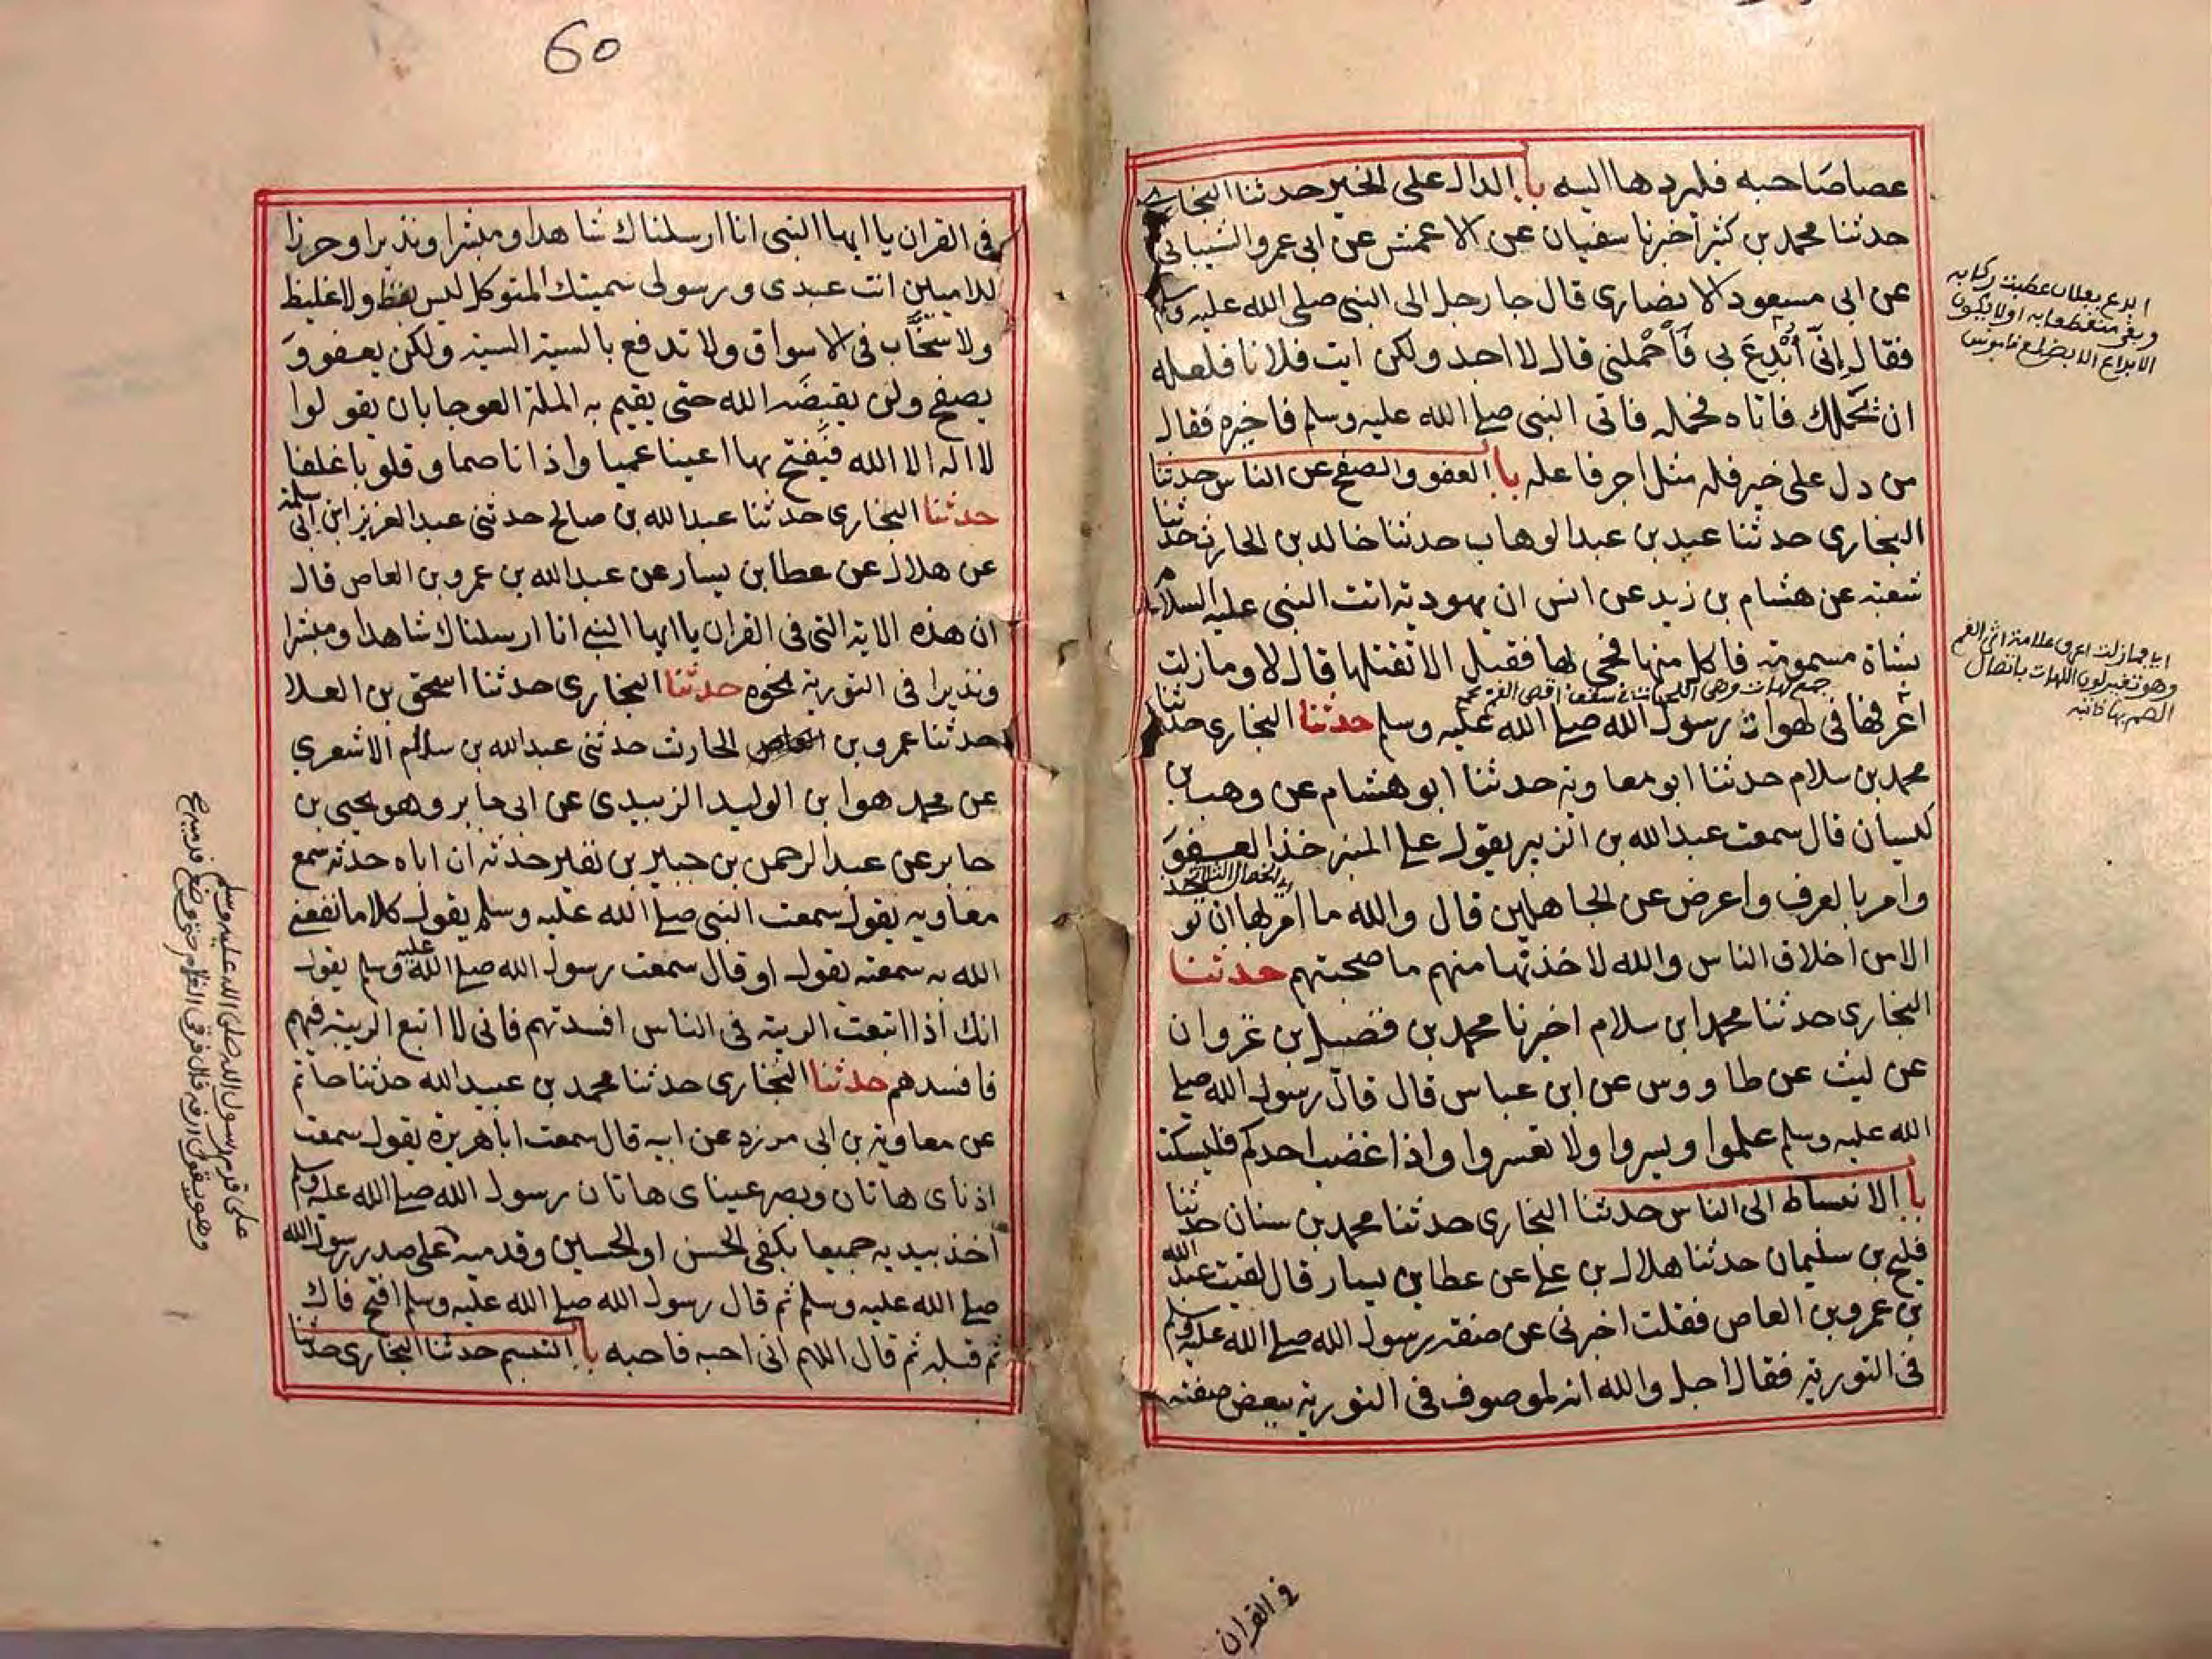 عصا صاحبه فليردها اليه باب الدال على الخير حدثنا البخاري
حدثنا محمد بن كثير اخبرنا سفيان عن الاعمش عن ابي عمرو الشيباني
عن ابي مسعود الانصاري قال جا رجل الى النبي صلى الله عليه وسلم
فقال اِنّي اُبْدِعَ بي فَاحْملني قال لا اجد ولكن ايت فلانا فلعله
ان يحملك فاتاه فحمله فاتى النبي صلى الله عليه وسلم فاخبره فقال
من دل على خير فله مثل اجر فاعله باب العفو والصفح عن الناس حدثنا
البخاري حدثنا عبد بن عبد الوهاب حدثنا خالد بن الحارث حدثنا
شعبة عن هشام بن زيد عن انس ان يهودية اتت النبي عليه السلام
بشاة مسمومة فاكل منها فجي لها فقيل الا تقتلها قال لا وما زلت
جمع لهات وهي اللحمات في سقف اقصى الفم
اعرفها في لهوات رسول الله صلى الله عليه وسلم حدثنا البخاري حدثنا
محمد بن سلام حدثنا ابو معاوية حدثنا ابو هشام عن وهب بن
كيسان قال سمعت عبد الله بن الزبير يقول على المنبر خذ العفو
وامر بالعرف واعرض عن الجاهلين قال والله ما امر بها ان توخذ
الا من اخلاق الناس والله لاخذنها منهم ما صحبتهم حدثنا
البخاري حدثنا محمد ابن سلام اخبرنا محمد بن فضيل بن غزوان
عن ليث عن طاووس عن ابن عباس قال قال رسول الله صلى
الله عليه وسلم علموا ويسروا ولا تعسروا واذا غضب احدكم فليسكت
باب الانبساط الى الناس حدثنا البخاري حدثنا محمد بن سنان حدثنا
فليح بن سليمان حدثنا هلال بن علي عن عطا بن يسار قال لقيت عبد الله
بن عمرو بن العاص فقلت اخبرني عن صفة رسول الله صلى الله عليه وسلم
في التورية فقال اجل والله انه لموصوف في التورية ببعض صفته
في القران
60
في القران يا ايها النبي انا ارسلناك شاهدا ومبشرا ونذيرا وحرزا
للاميين انت عبدي ورسولي سميتك المتوكل ليس بفظ ولا غليظ
ولا سخَّاب في الاسواق ولا تدفع بالسية السية ولكن يعفو و
يصفح ولن يقبضه الله حتى يقيم به الملة العوجا بان يقولوا
لا اله الا الله فيفتح بها اعينا عميا واذانا صما وقلوبا غلفا
حدثنا البخاري حدثنا عبد الله بن صالح حدثني عبد العزيز ابن ابي سلمة
عن هلال عن عطا بن يسار عن عبد الله بن عمرو بن العاص قال
ان هذه الاية التي في القران يا ايها النبي انا ارسلناك شاهدا ومبشرا
ونذيرا في التورية نحوه حدثنا البخاري حدثنا اسحق بن العلا
حدثنا عمرو بن الحارث حدثني عبد الله بن سلام الاشعري
عن محمد هو ابن الوليد الزبيدي عن ابي جابر وهو يحيى بن
جابر عن عبد الرحمن بن جبير بن نفير حدثه ان اباه حدثه سمع
معاويه يقول سمعت النبي صلى الله عليه وسلم يقول كلاما نفعني
الله به سمعته يقول او قال سمعت رسول الله صلى الله عليه وسلم يقول
انك اذا اتبعت الريبة في الناس افسدتهم فاني لا اتبع الريبة فيهم
فافسدهم حدثنا البخاري حدثنا محمد بن عبيد الله حدثنا حاتم
عن معاوية بن ابي مزرد عن ابيه قال سمعت ابا هريرة يقول سمعت
اذناي هاتان وبصر عيناي هاتان رسول الله صلى الله عليه وسلم
اخذ بيديه جميعا بكفي الحسن او الحسين وقدميه على صدر رسول الله
صلى الله عليه وسلم ثم قال رسول الله صلى الله عليه وسلم افتح فاك
ثم قبله ثم قال اللهم اني احبه فاحبه باب التبسم حدثنا البخاري حدثنا
على قدم رسول الله صلى الله عليه وسلم